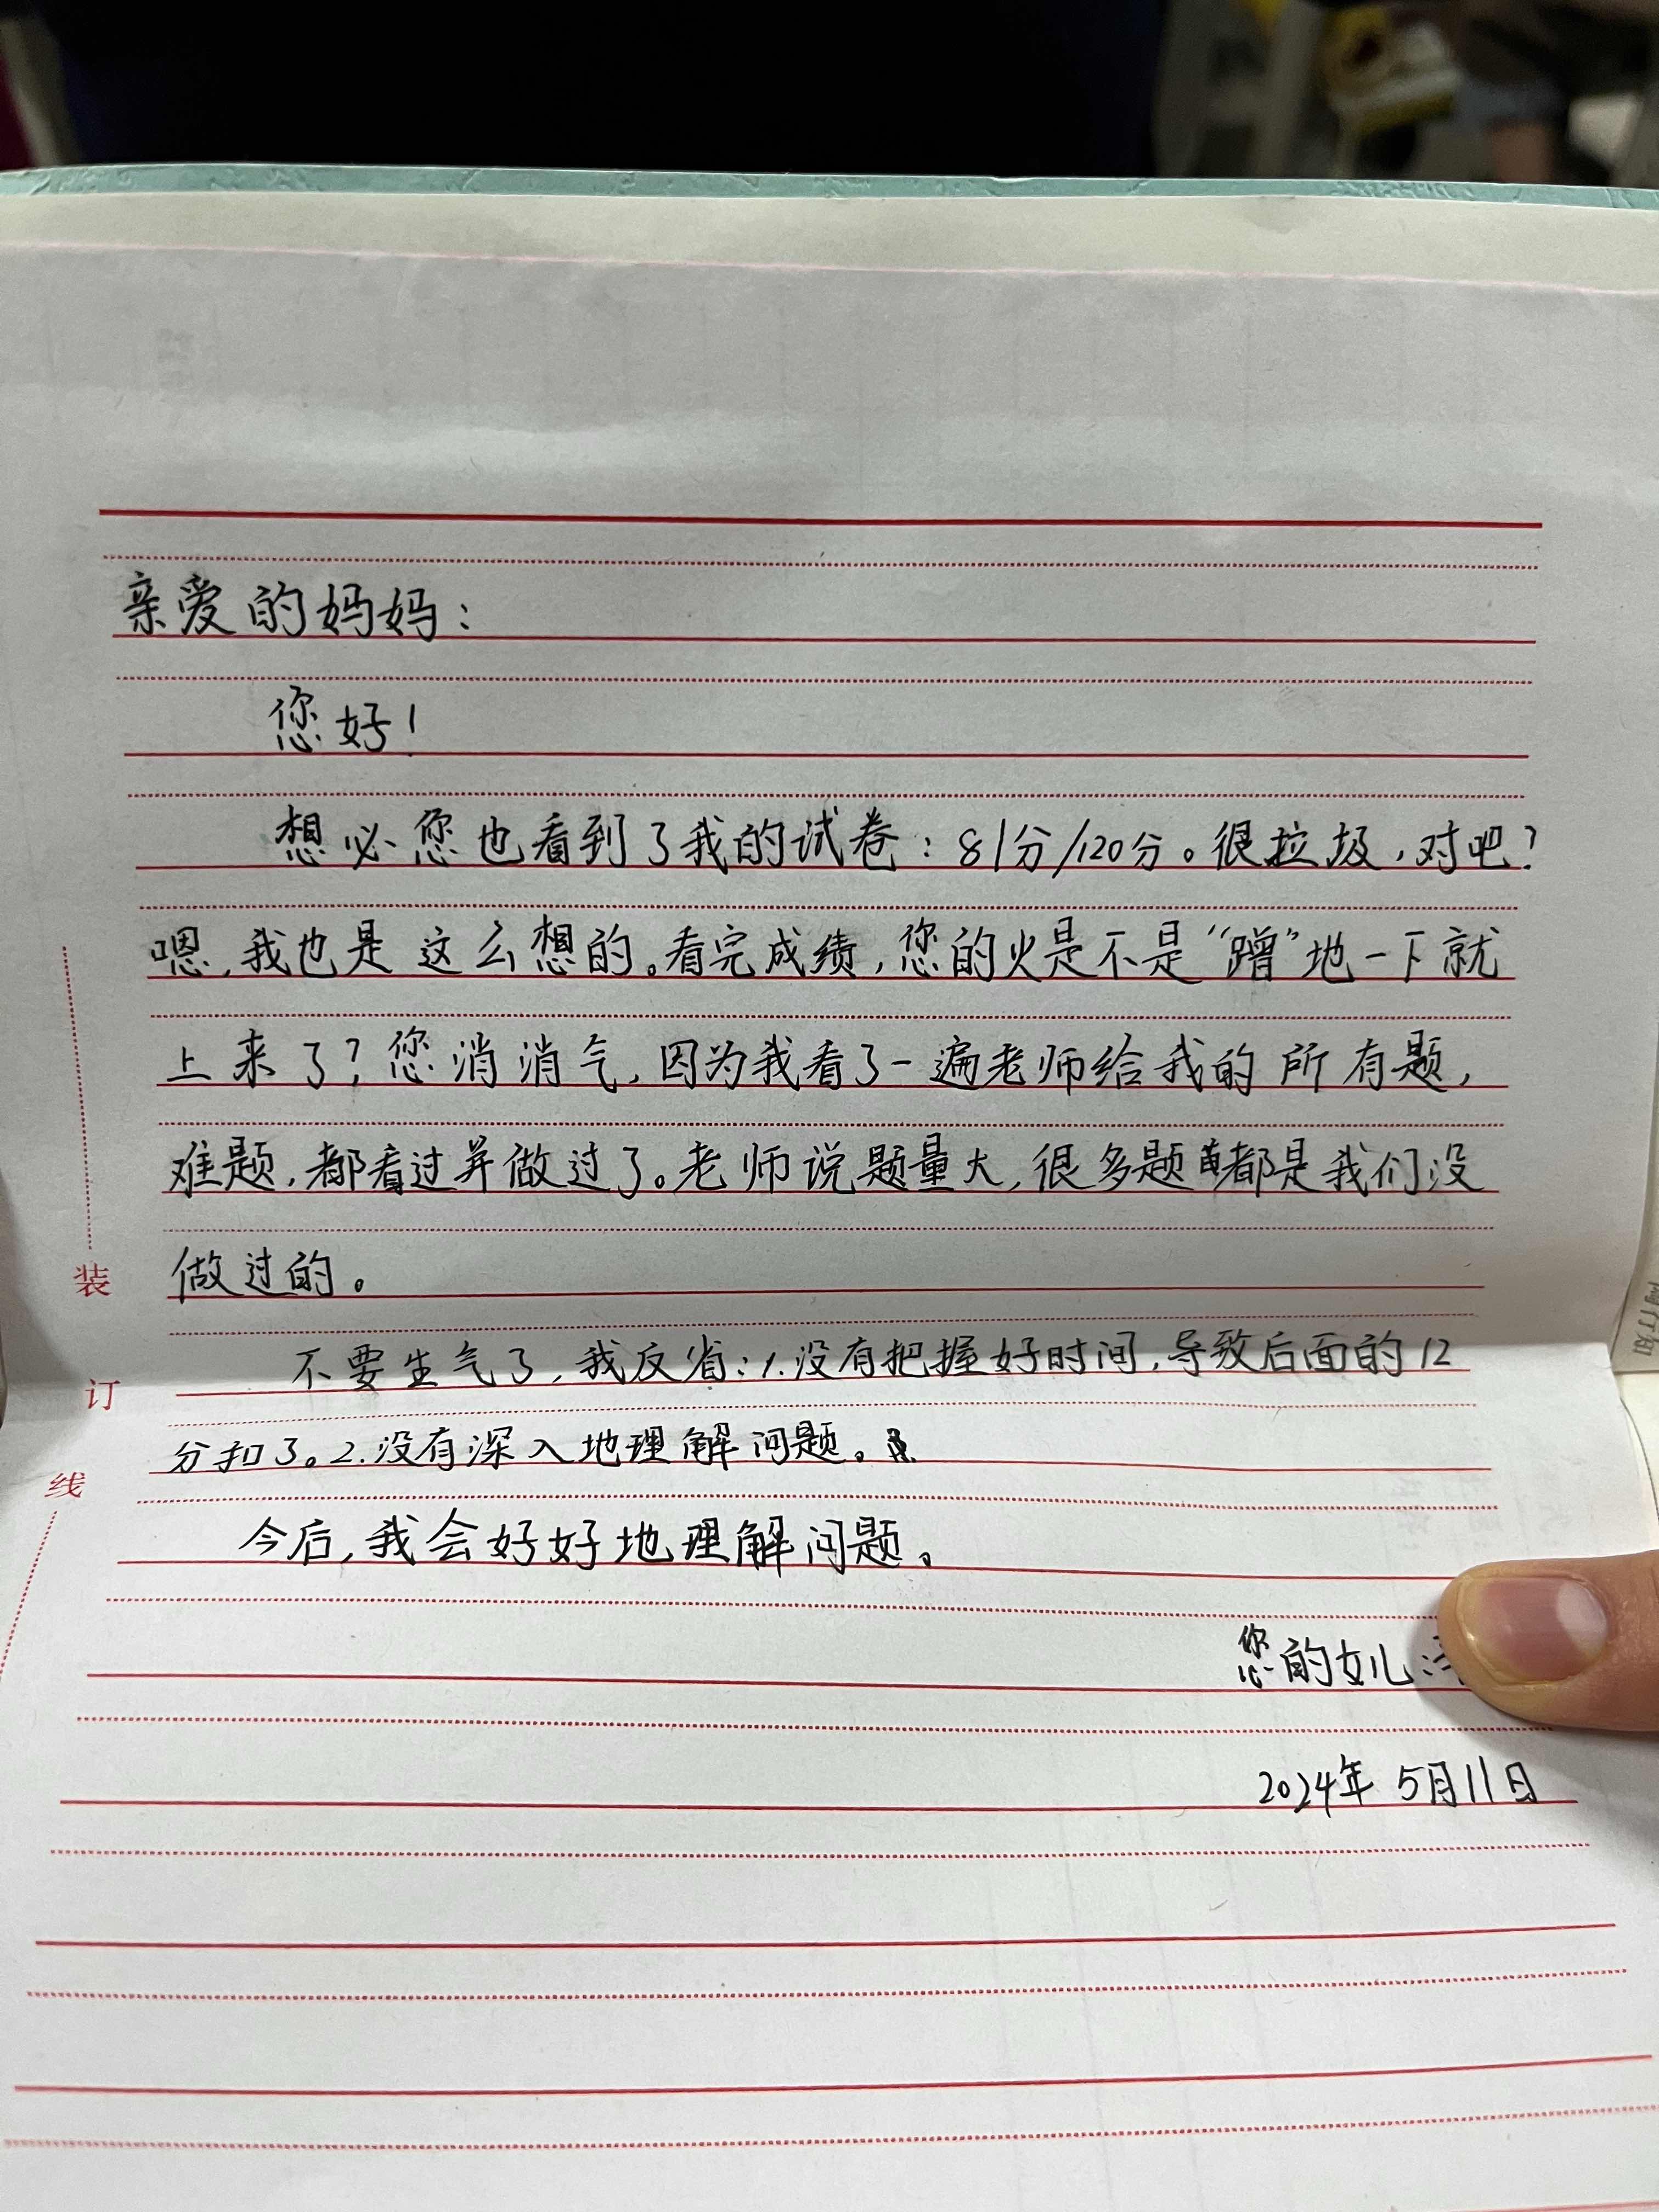 亲爱的妈妈：
您好！
想必您也看到了我的试卷：81分/120分。很垃圾，对吧？
嗯，我也是这么想的。看完成绩，您的火是不是“蹭”地一下就
上来了？您消消气，因为我看了一遍老师给我的所有题，
难题，都看过并做过了。老师说题量大，很多题都是我们没
做过的。
不要生气了，我反省：1.没有把握好时间，导致后面的12
分扣了。2.没有深入地理解问题。
今后，我会好好地理解问题。
您的女儿：
2024年5月11日
装
订
线